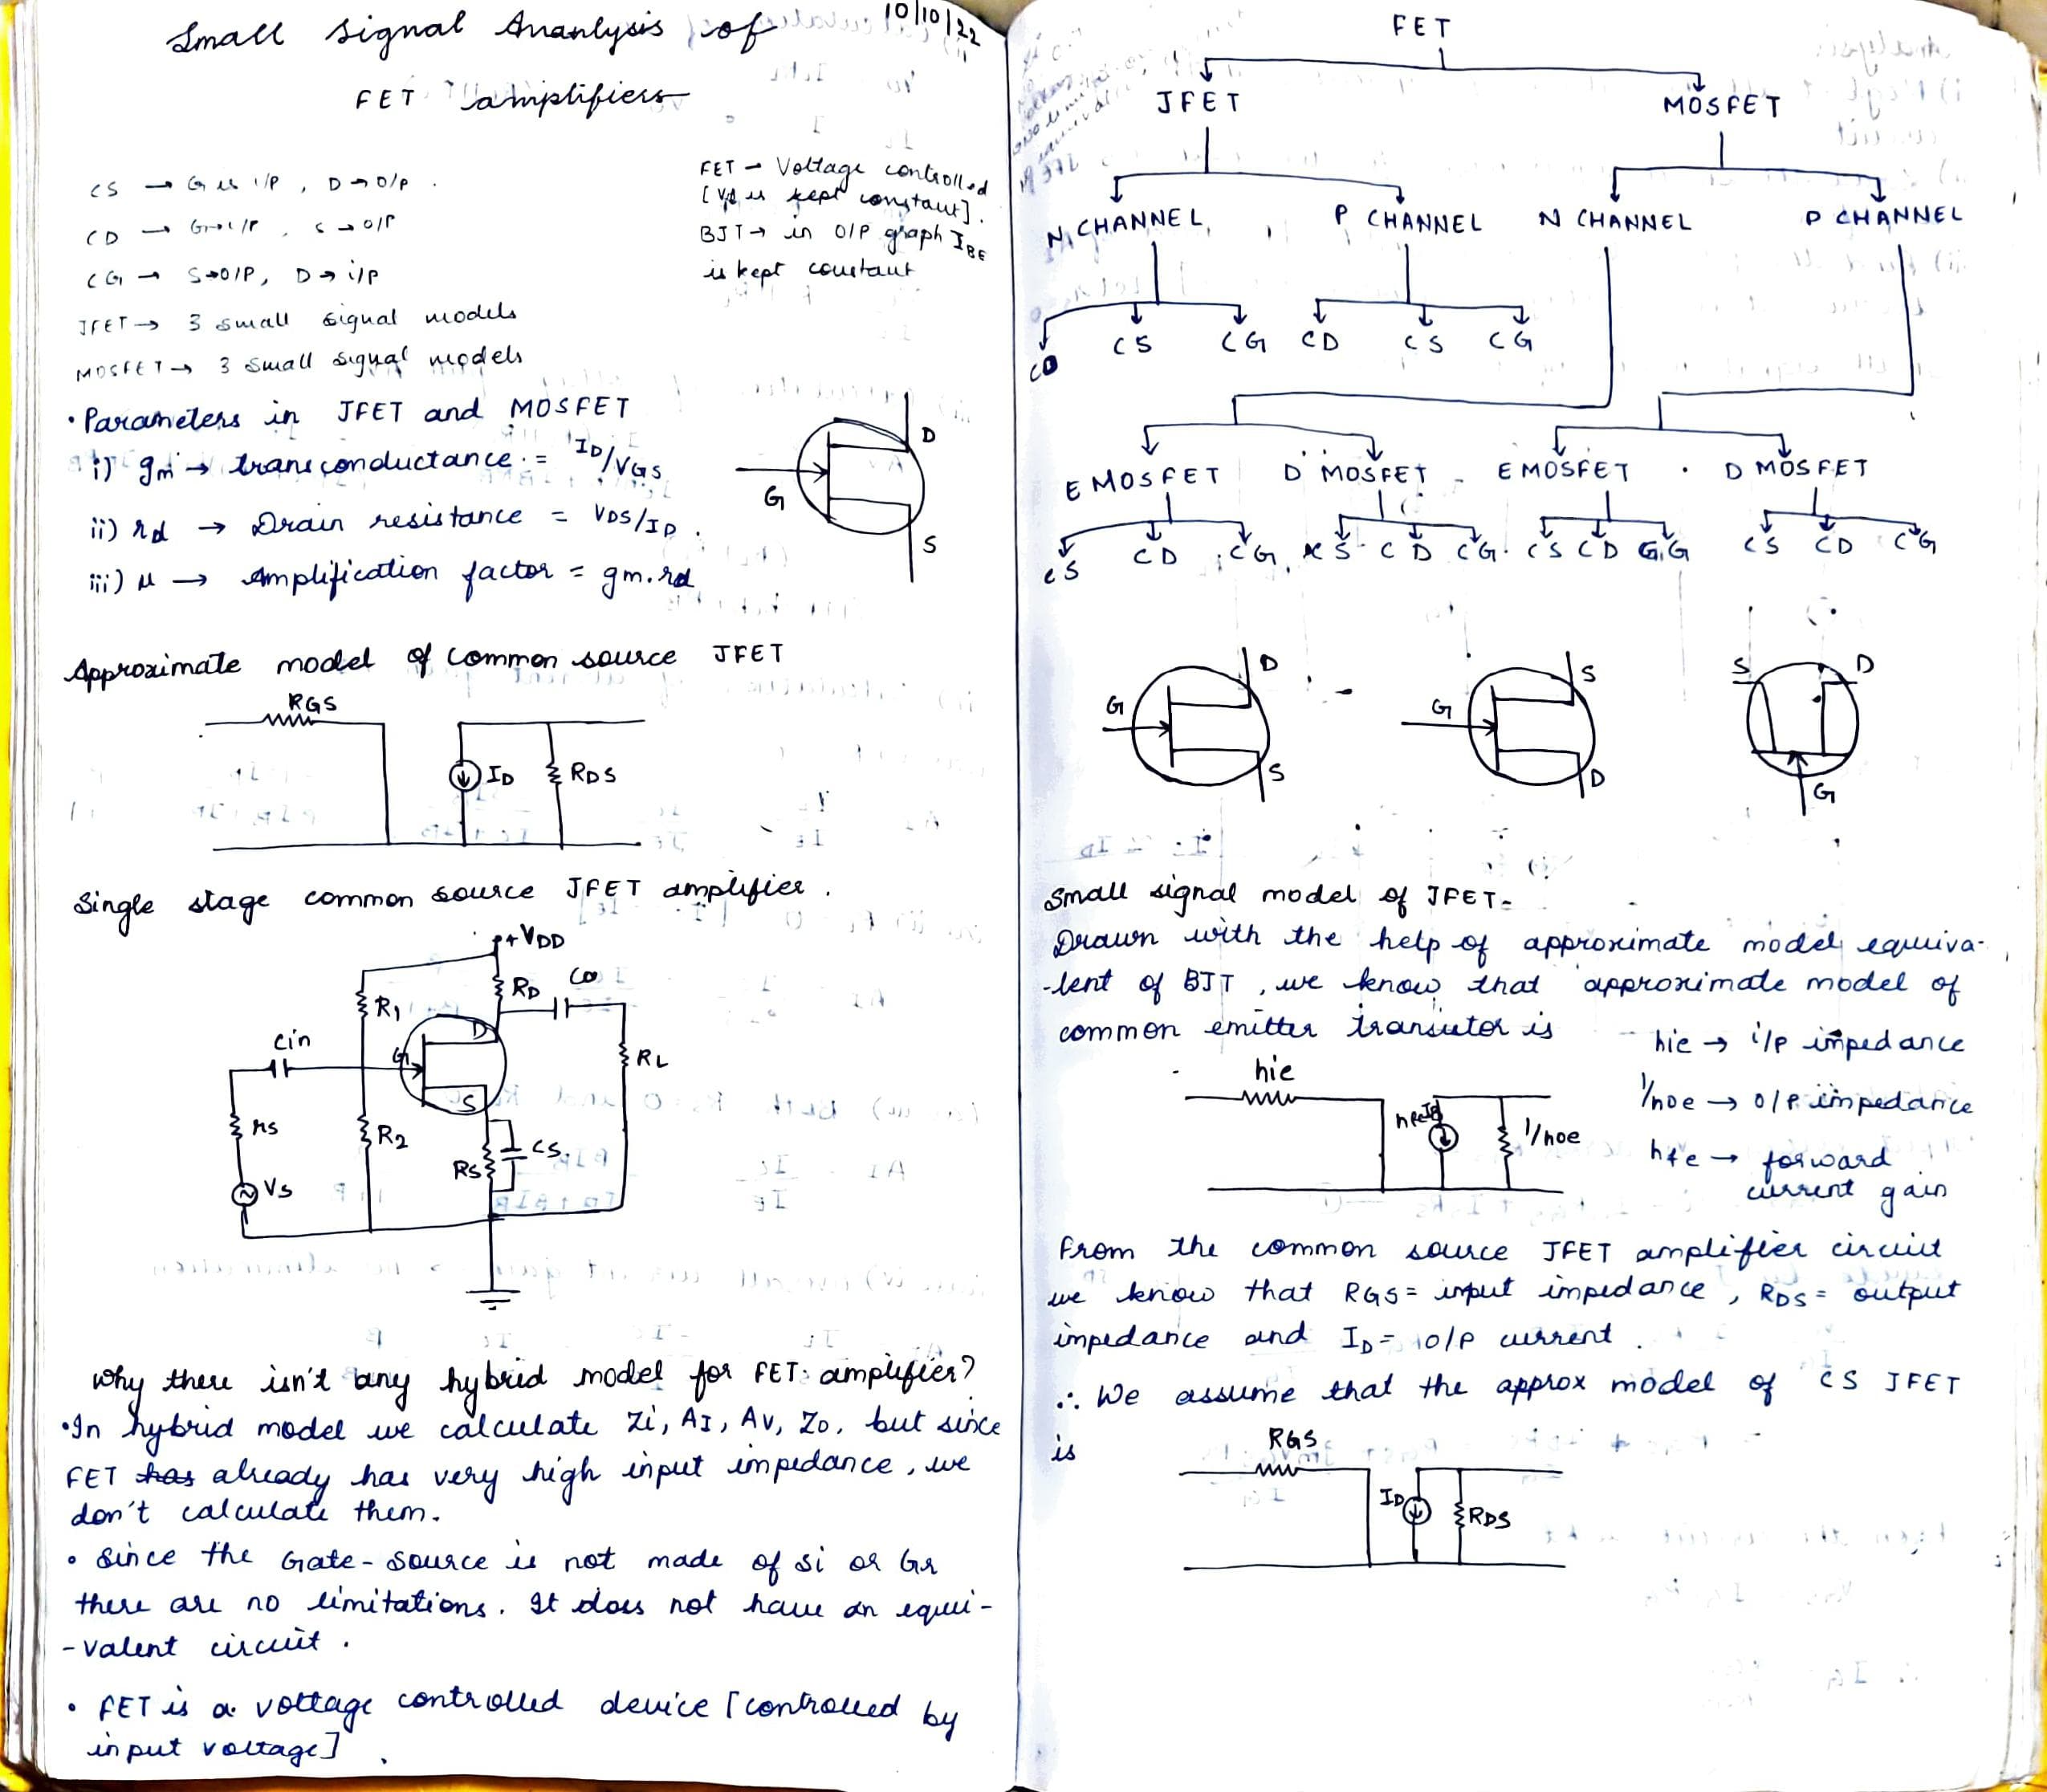 10/10/22
Small signal Ananlysis of
FET amplifiers
CS → G is i/p , D → O/p .
CD → G → i/p , S → o/p
CG → S → O/P, D → i/p
JFET → 3 small signal models
MOSFET → 3 small signal models
FET → Voltage controlled
is kept constant].
BJT → in O/P graph IBE
is kept constant
• Parameters in JFET and MOSFET
i) gm → transconductance = ID/VGS
ii) rd → Drain resistance = VDS/ID .
iii) µ → Amplification factor = gm.rd
D
G
S
Approximate model of common source JFET
RGS
ID
RDS
Single stage common source JFET amplifier .
+VDD
RD
Co
R1
Cin
D
G
S
RL
Rs
R2
Cs
Rs
Vs
Why there isn't any hybrid model for FET amplifier?
•In hybrid model we calculate Zi, AI, AV, Zo, but since
FET has already has very high input impedance, we
don't calculate them.
• Since the Gate-Source is not made of si or Ge
there are no limitations. It does not have an equi-
-valent circuit .
• FET is a voltage controlled device [controlled by
input voltage] .
FET
JFET MOSFET
N CHANNEL P CHANNEL N CHANNEL P CHANNEL
CD CS CG CD CS CG
E MOSFET D MOSFET E MOSFET D MOSFET
CS CD CG CS CD CG CS CD CG CS CD CG
D
G
S
S
G
D
S D
G
Small signal model of JFET-
Drawn with the help of approximate model equiva-
-lent of BJT , we know that approximate model of
common emitter transistor is
hie → i/p impedance
1/hoe → o/p impedance
hfe → forward
current gain
hie
1/hoe
From the common source JFET amplifier circuit
we know that RGS = input impedance , RDS = output
impedance and ID = o/p current .
∴ We assume that the approx model of CS JFET
is
RGS
ID
RDS